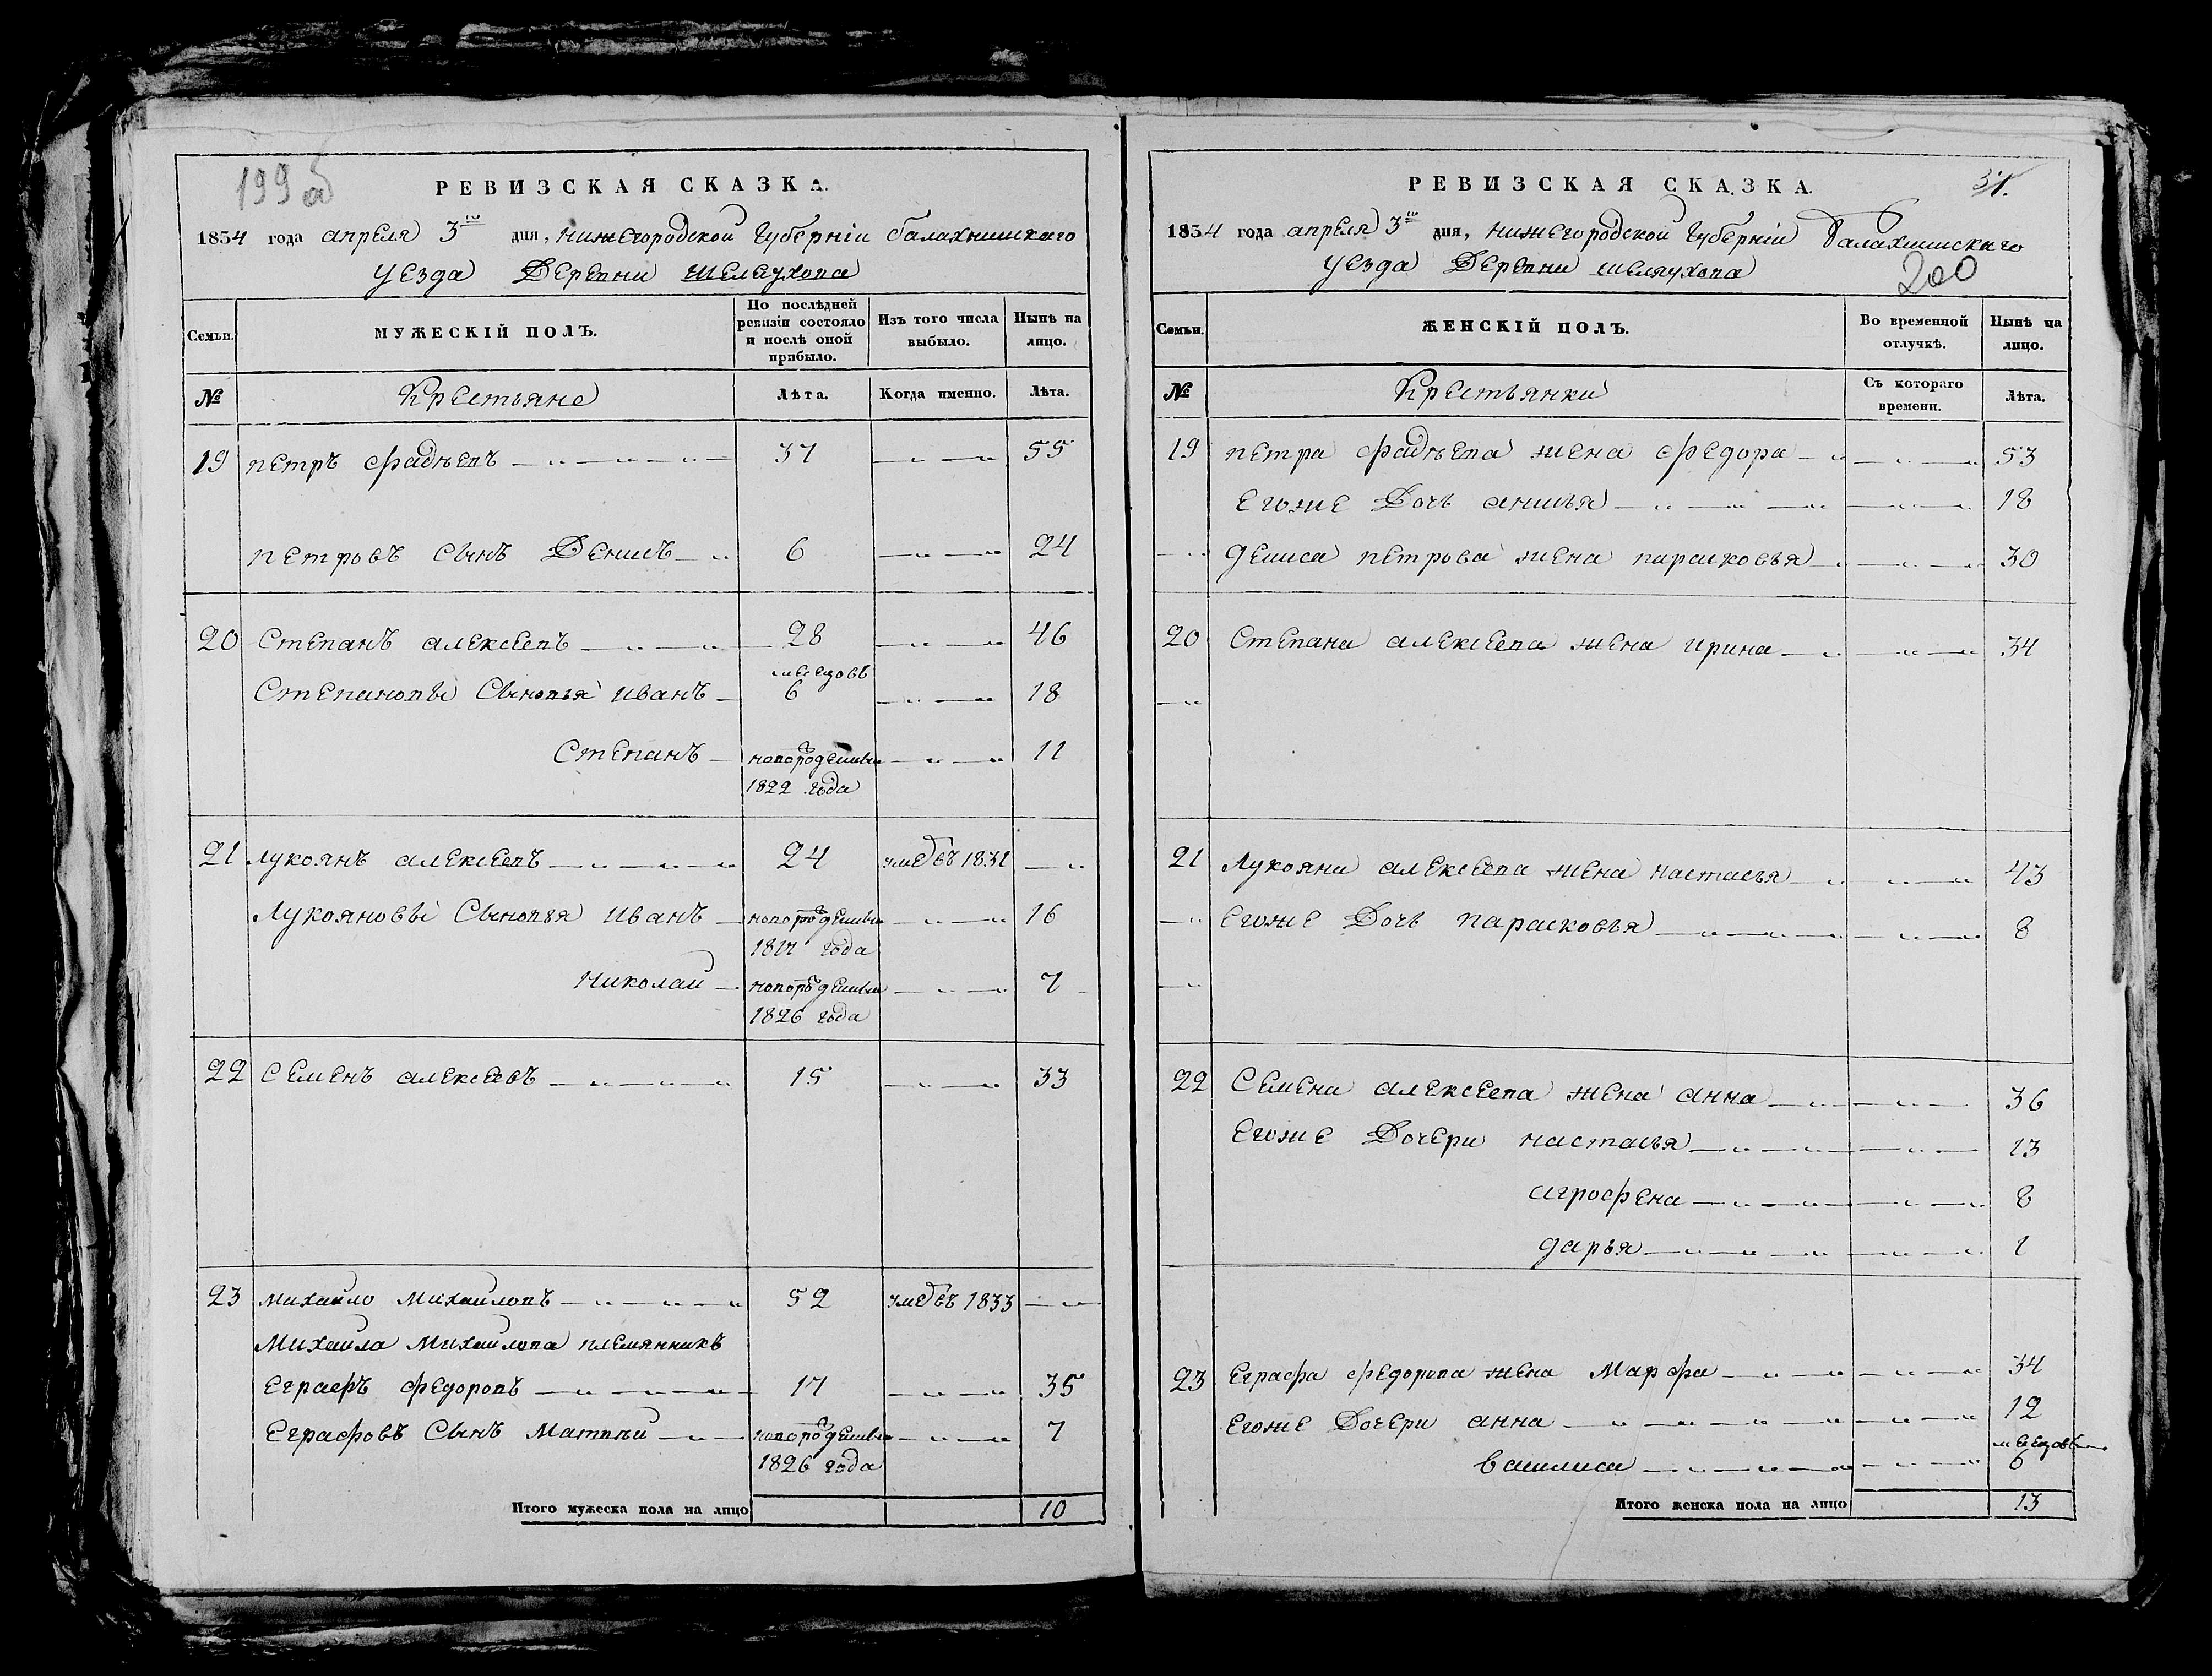 199 об
РЕВИЗСКАЯ СКАЗКА.
1834 года апреля 3го дня, нижегородской губернiи балахнинскаго
уезда Деревни шелеухова
Семьи.
МУЖЕСКІЙ ПОЛЪ.
По послѣдней ревизіи состояло и послѣ оной прибыло.
Изъ того числа выбыло.
Нынѣ на лицо.
№
Крестьяне
Лѣта.
Когда именно.
Лѣта.
19 петръ фадѣевъ 37 55
петровъ сынъ Денисъ 6 24
20 Степанъ алексеевъ 28 46
месецовъ
Степановы сыновья иванъ 6 18
Степанъ новорожденный 11
1822 года
21 лукоянъ алексеевъ 24 умре въ 1831
Лукояновы сыновья иванъ новорожденный 16
1817 года
николай новорожденный 7
1826 года
22 семенъ алексеевъ 15 33
23 михайло михайловъ 52 умре въ 1833
михайла михайлова племянникъ
еграфъ федоровъ 17 35
еграфовъ сынъ матвей новорожденный 7
1826 года
Итого мужеска пола на лицо 10
РЕВИЗСКАЯ СКАЗКА.
31.
1834 года апреля 3го дня, нижегородской губернiи балахнинскаго
уезда Деревни шеляухова
200
Семьи.
ЖЕНСКІЙ ПОЛЪ.
Во временной отлучкѣ.
Нынѣ на лицо.
№
Крестьянки
Съ котораго времени.
Лѣта.
19 петра фадѣева жена федора 53
егоже Дочь анисья 18
дениса петрова жена парасковья 30
20 Степана алексеева жена ирина 34
21 Лукояна алексеева жена настасья 43
егоже Дочь парасковья 8
22 Семена алексеева жена анна 36
егоже Дочери настасья 13
агрофена 8
дарья 1
23 еграфа федорова жена Марфа 34
егоже Дочери анна 12
месецовъ
василиса 6
Итого женска пола на лицо 13